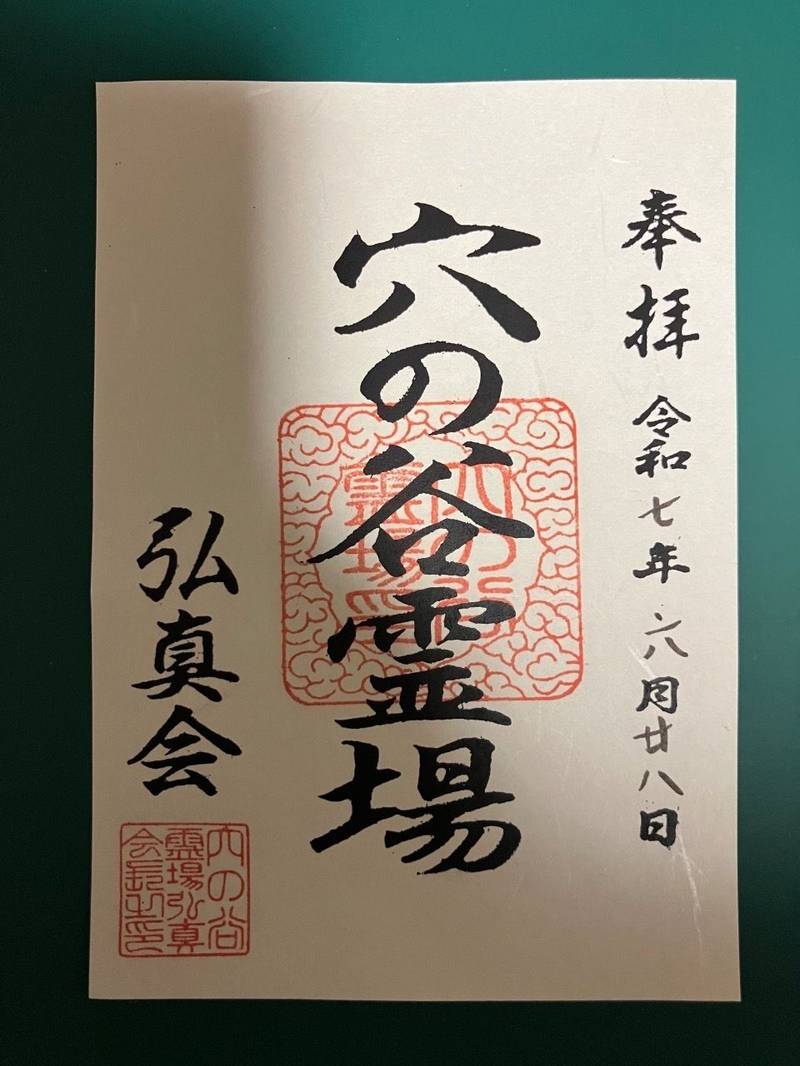 奉拝 令和七年 六月廿八日
穴の谷霊場
穴の谷
靈場印
弘真会
穴の谷
靈場弘真
会長之印